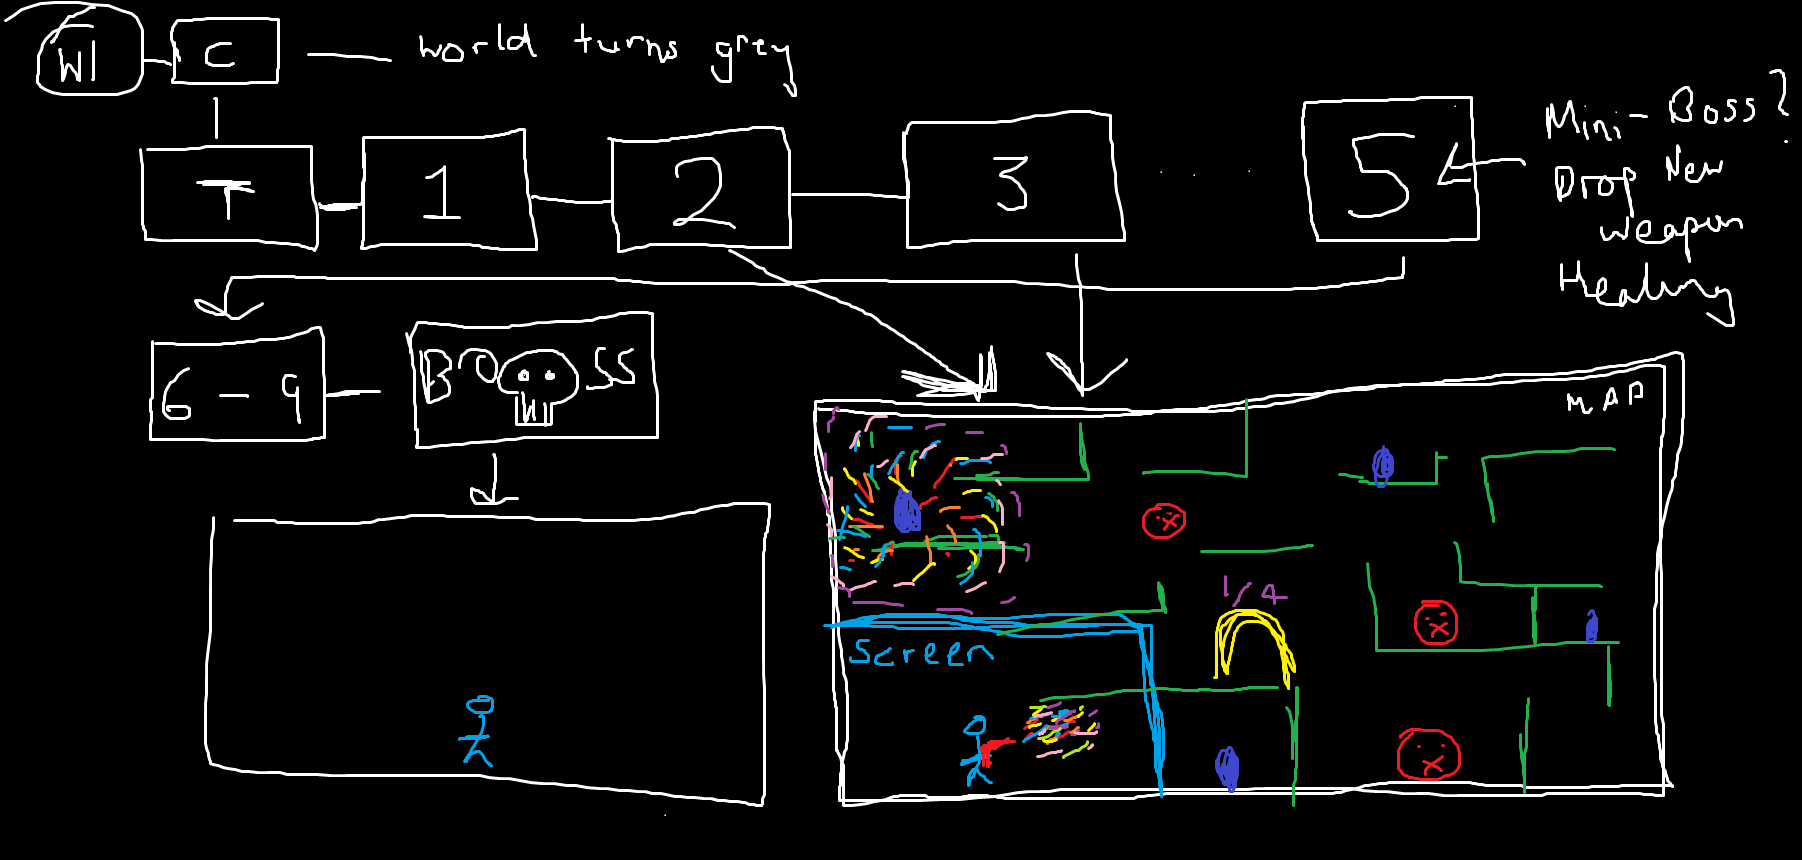 W1
C
world turns grey
T
1
2
3
5
Mini-Boss?
Drop New
weapon
Healing
6-9
BOSS
MAP
1/4
Screen